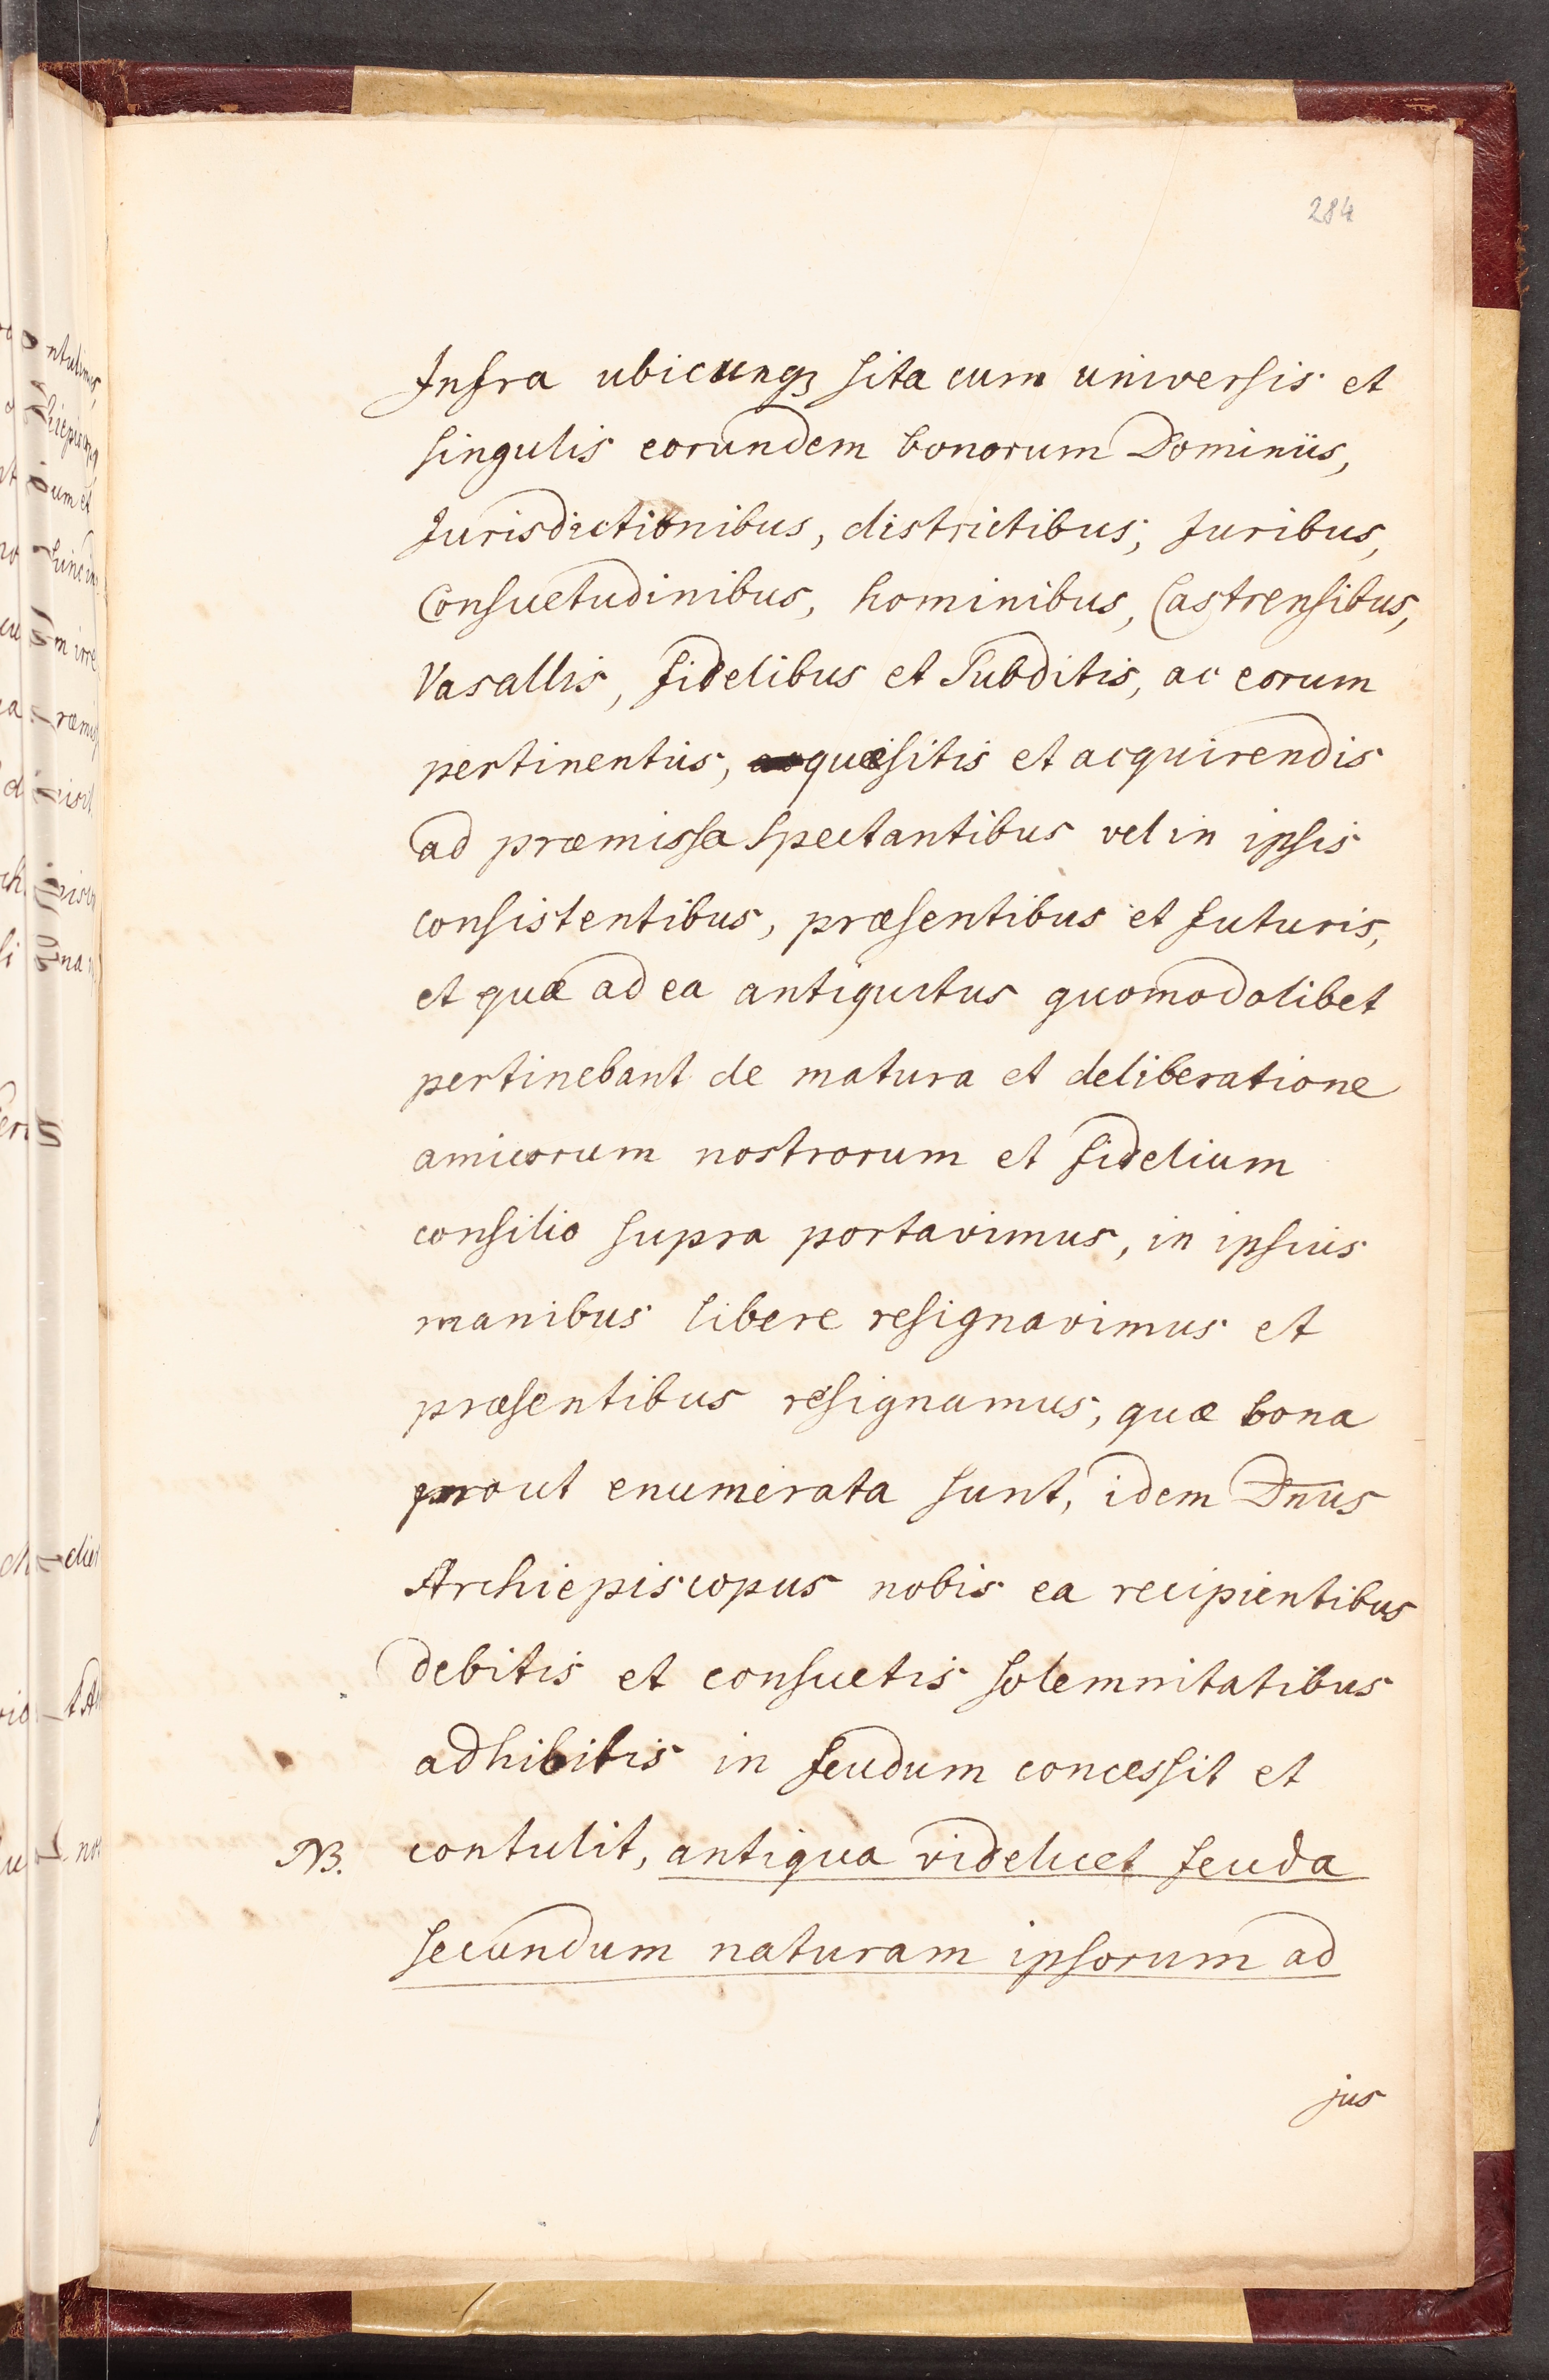 284
Infra ubicunqꝫ sita cum universis et
singulis eorundem bonorum Dominiis,
Jurisdictionibus, districtibus, Juribus,
Consuetudinibus, hominibus, Castrensibus,
Vasallis, fidelibus et Subditis, ac eorum
pertinentiis, quæsitis et acquirendis
ad præmissa spectantibus vel in ipsis
consistentibus, præsentibus et futuris,
et quæ ad ea antiquitus quomodolibet
pertinebant de matura et deliberatione
amicorum nostrorum et fidelium
consilio supra portavimus, in ipsius
manibus libere resignavimus et
præsentibus resignamus, quæ bona
prout enumerata sunt, idem Dn̄us
Archiepiscopus nobis ea recipientibus
debitis et consuetis solemnitatibus
adhibitis in feudum concessit et
NB. contulit, antiqua videlicet feuda
secundum naturam ipsorum ad
jus